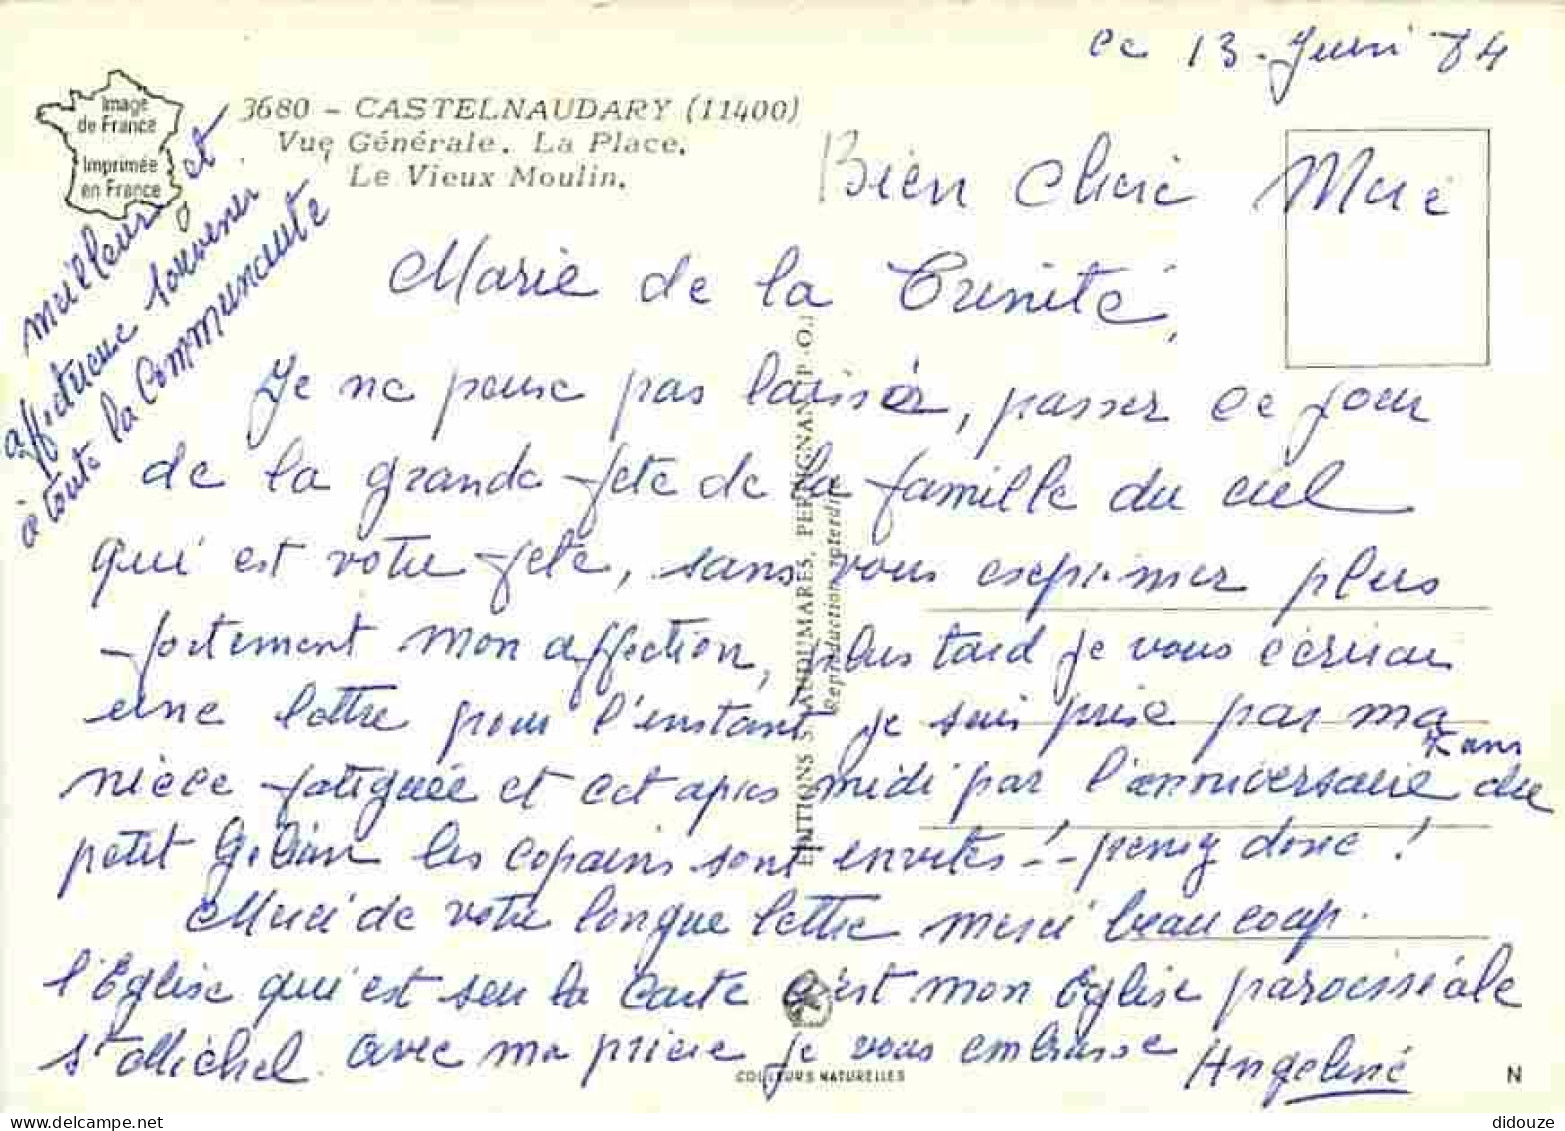 le 13 Juin 84
Image
de France
Imprimée
en France
3680 - CASTELNAUDARY (11400)
Vue Générale. La Place.
Le Vieux Moulin.
Bien chère Mère
Marie de la Trinité,
Je ne peux pas laisser, passer ce jour
de la grande fête de la famille du ciel
qui est votre fête, sans vous exprimer plus
fortement mon affection, plus tard je vous écrirai
une lettre pour l'instant je suis prise par ma
nièce fatiguée et cet après midi par l'anniversaire 7 ans du
petit les copains sont invités !-- pensez donc !
Merci de votre longue lettre merci beaucoup.
l'Eglise qui est sur la carte c'est mon Eglise paroissiale
St Michel. avec ma prière je vous embrasse Angeline
meilleur et
affectueux souvenir
à toute la Communauté
EDITIONS S. AUDUMARES, PERPIGNAN (P.-O.)
Reproduction interdite
COULEURS NATURELLES
N
didouze